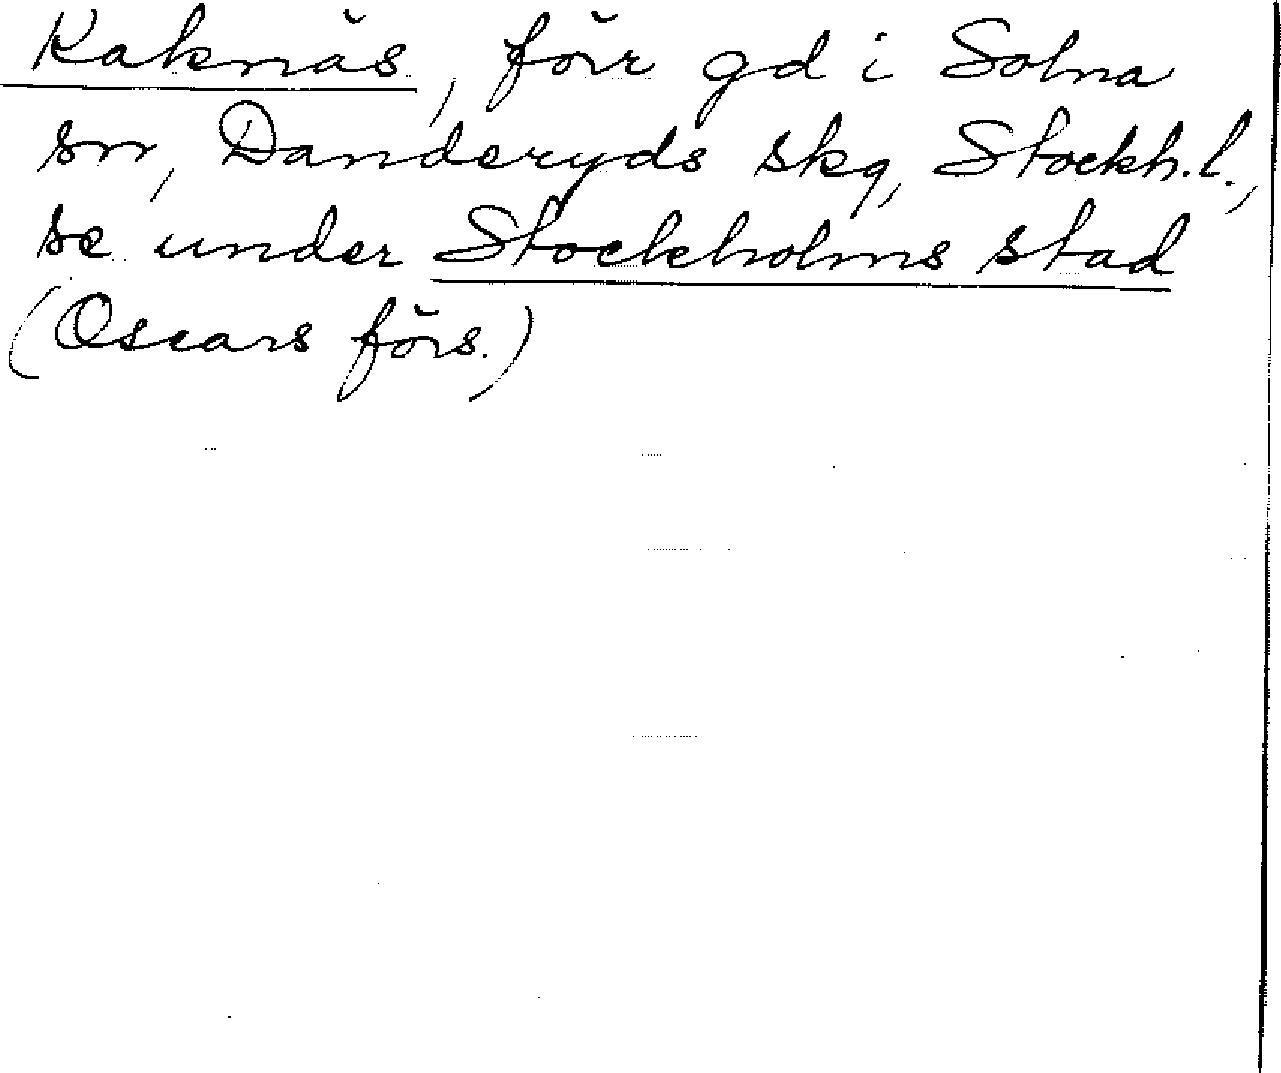 Kaknäs, förr gd i Solna
sn, Danderyds skg, Stockh.l.,
se under Stockholms stad
(Oscars förs.)